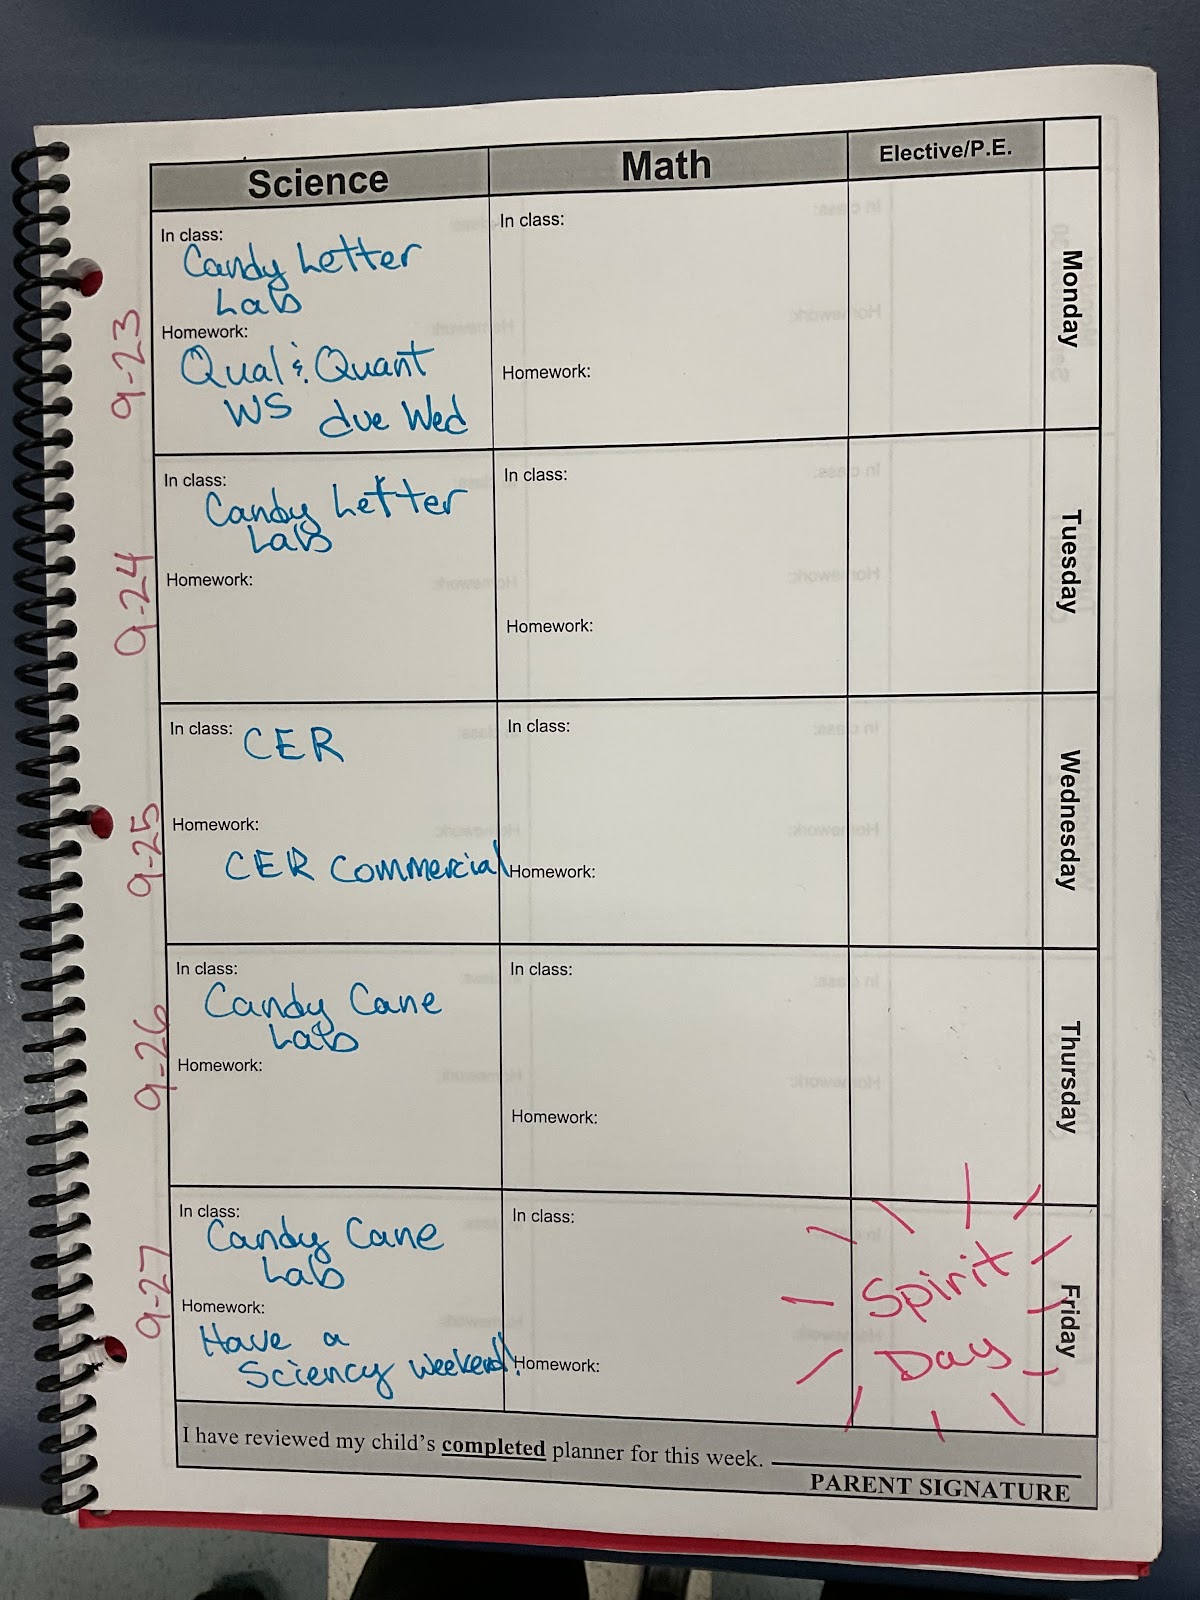 Science
Math
Elective/P.E.
9-23
In class:
Candy Letter
Lab
Homework:
Qual & Quant
WS due Wed
In class:
Homework:
Monday
9-24
In class:
Candy Letter
Lab
Homework:
In class:
Homework:
Tuesday
9-25
In class: CER
Homework:
CER Commercial
In class:
Homework:
Wednesday
9-26
In class:
Candy Cane
Lab
Homework:
In class:
Homework:
Thursday
9-27
In class:
Candy Cane
Lab
Homework:
Have a
Sciency Weekend!
In class:
Homework:
Spirit
Day
Friday
I have reviewed my child's completed planner for this week.
PARENT SIGNATURE